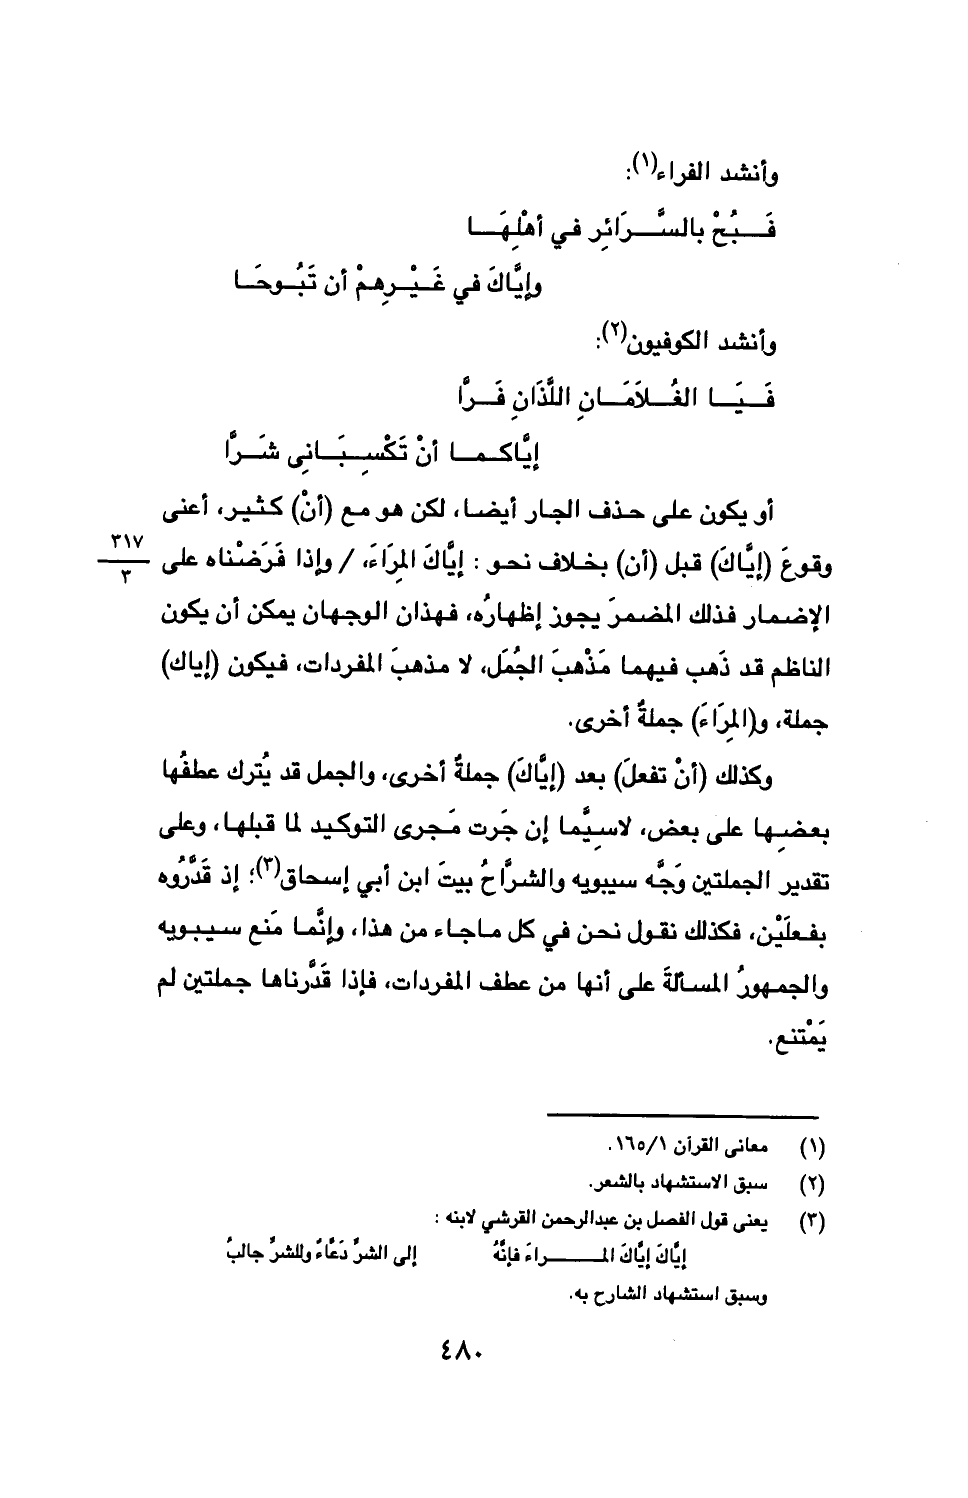 وأنشد الفراء(١):
فَـــبُحْ بالسَّـــرَائِرِ في أهْلِهَـــا
وإيَّاكَ في غَـــيْـــرِهِمْ أن تَبُـــوحَـــا
وأنشد الكوفيون(٢):
فَـــيَـــا الغُـــلاَمَـــانِ اللَّذَانِ فَـــرَّا
إيَّاكـــمـــا أنْ تَكْسِـــبَـــانِى شَـــرَّا
أو يكون على حذف الجار أيضا، لكن هو مع (أنْ) كثير، أعنى
وقوعَ (إيَّاكَ) قبل (أن) بخلاف نحو : إيَّاكَ المِرَاءَ، / وإذا فَرَضْناه على
٣١٧
٣
الإضمار فذلك المضمرَ يجوز إظهارُه، فهذان الوجهان يمكن أن يكون
الناظم قد ذَهب فيهما مَذْهبَ الجُمَل، لا مذهبَ المفردات، فيكون (إياك)
جملة، و(المِرَاءَ) جملةٌ أخرى.
وكذلك (أنْ تفعلَ) بعد (إيَّاكَ) جملةٌ أخرى، والجمل قد يُترك عطفُها
بعضِها على بعض، لاسيَّما إن جَرت مَجرى التوكيد لما قبلها، وعلى
تقدير الجملتين وَجَّه سيبويه والشرَّاحُ بيتَ ابن أبي إسحاق(٣)؛ إذ قَدَّرُوه
بفعلَيْن، فكذلك نقول نحن في كل ماجاء من هذا، وإنَّما مَنع سيبويه
والجمهورُ المسألةَ على أنها من عطف المفردات، فإذا قَدَّرناها جملتين لم
يَمْتنع.
(١) معانى القرآن ١٦٥/١.
(٢) سبق الاستشهاد بالشعر.
(٣) يعنى قول الفصل بن عبدالرحمن القرشي لابنه :
إيَّاكَ إيَّاكَ المـــراءَ فإنَّهُ إلى الشرِّ دَعَّاءٌ وللشرِّ جالبُ
وسبق استشهاد الشارح به.
٤٨٠